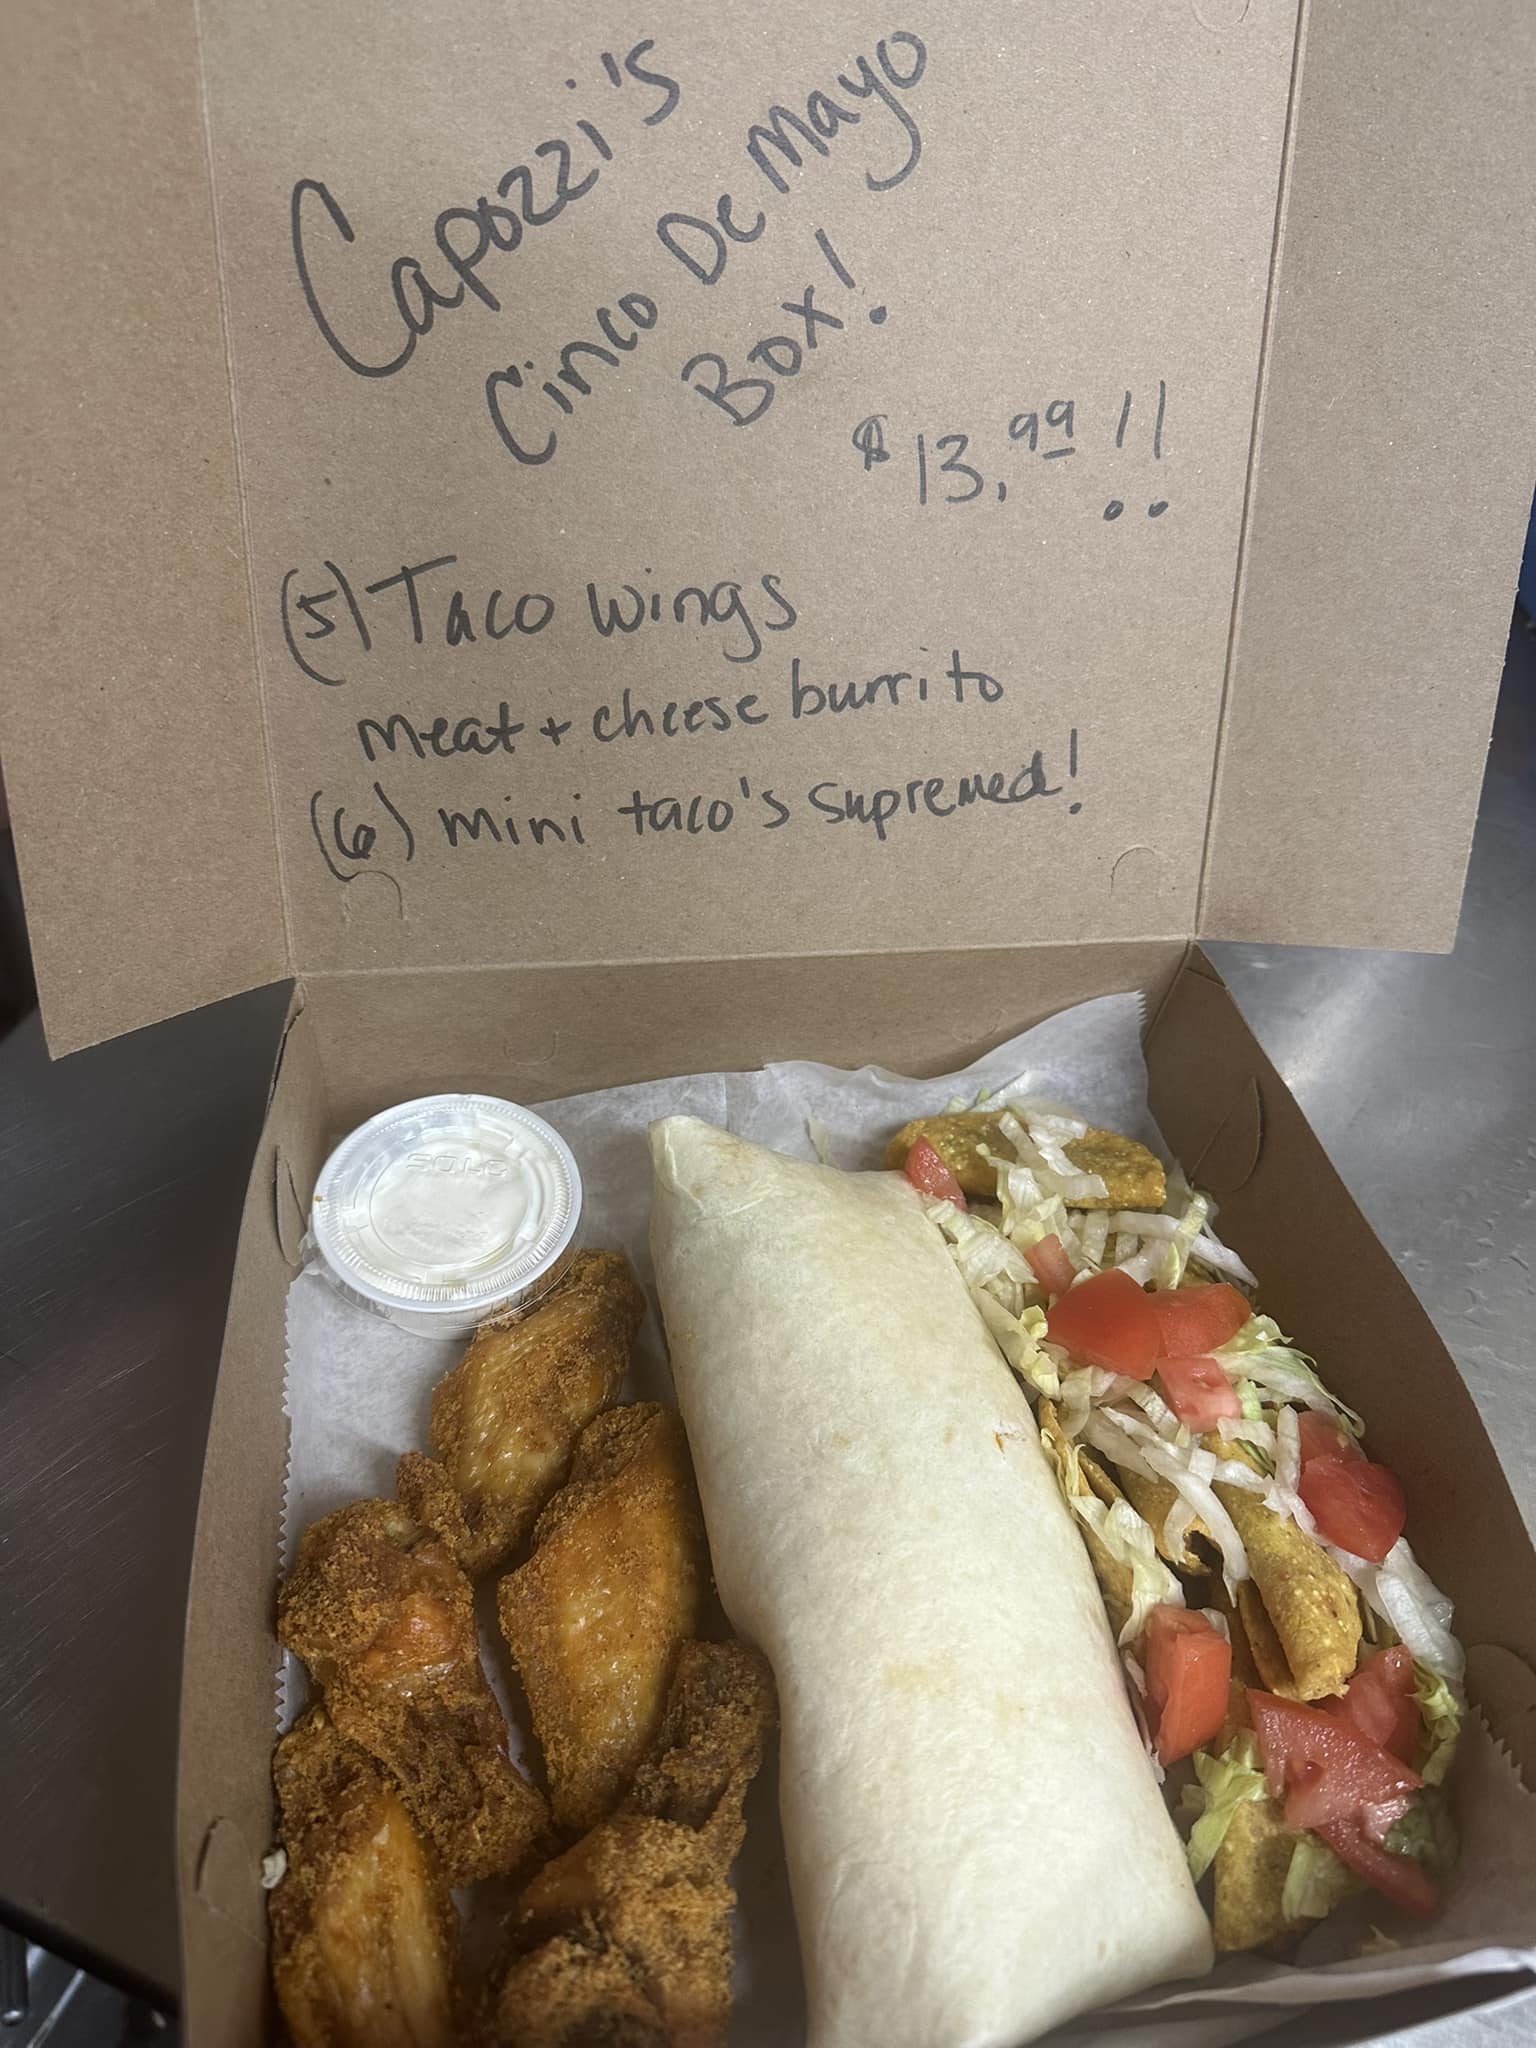 Capozzi's
Cinco De Mayo
Box!
$13.99!!
(5) Taco wings
meat + cheese burrito
(6) mini taco's supremed!
SOLO